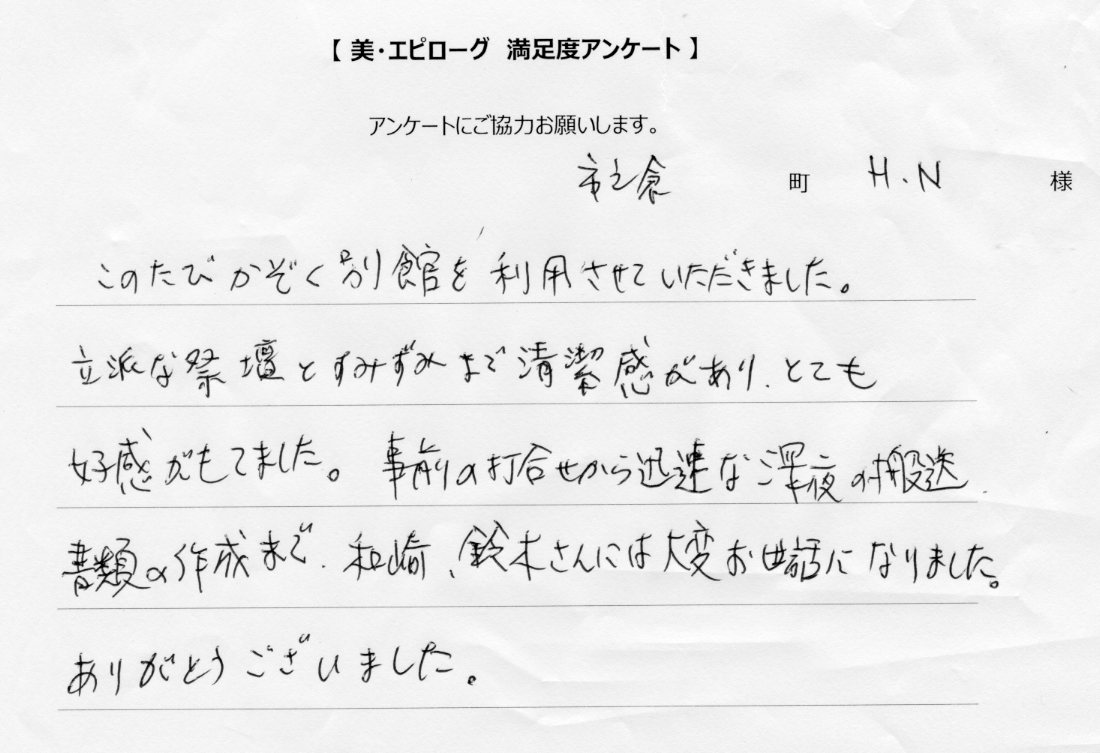 【 美・エピローグ 満足度アンケート 】
アンケートにご協力お願いします。
市之倉 町 H.N 様
このたびかぞく別館を利用させていただきました。
立派な祭壇とすみずみまで清潔感があり、とても
好感がもてました。事前の打合せから迅速な深夜の搬送、
書類の作成まで、和崎、鈴木さんには大変お世話になりました。
ありがとうございました。